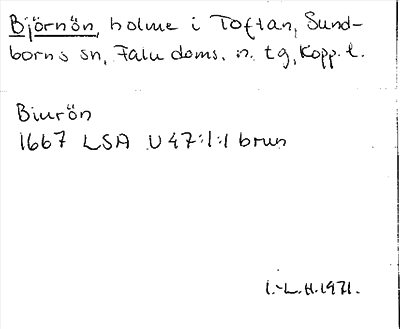 Björnön, holme i Toftan, Sund-
borns sn, Falu doms. n. tg, Kopp. l.
Biurön
1667 LSA U47:1:1 brun
I.-L.H.1971.